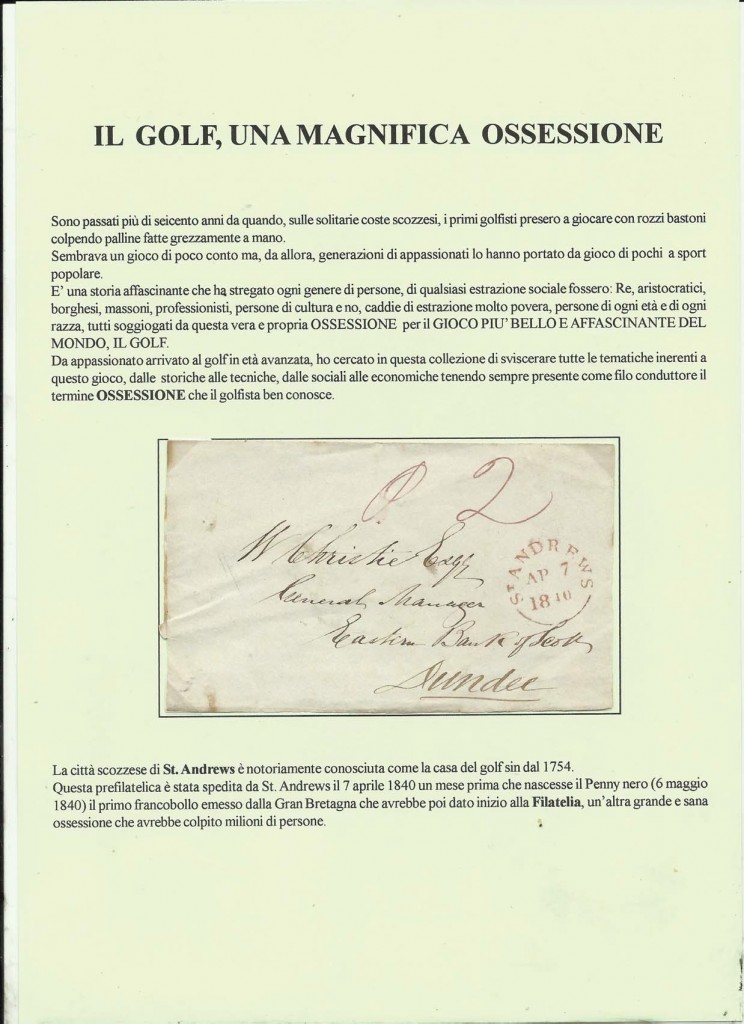 IL GOLF, UNA MAGNIFICA OSSESSIONE
Sono passati più di seicento anni da quando, sulle solitarie coste scozzesi, i primi golfisti presero a giocare con rozzi bastoni
colpendo palline fatte grezzamente a mano.
Sembrava un gioco di poco conto ma, da allora, generazioni di appassionati lo hanno portato da gioco di pochi a sport
popolare.
E' una storia affascinante che ha stregato ogni genere di persone, di qualsiasi estrazione sociale fossero: Re, aristocratici,
borghesi, massoni, professionisti, persone di cultura e no, caddie di estrazione molto povera, persone di ogni età e di ogni
razza, tutti soggiogati da questa vera e propria OSSESSIONE per il GIOCO PIU' BELLO E AFFASCINANTE DEL
MONDO, IL GOLF.
Da appassionato arrivato al golf in età avanzata, ho cercato in questa collezione di sviscerare tutte le tematiche inerenti a
questo gioco, dalle storiche alle tecniche, dalle sociali alle economiche tenendo sempre presente come filo conduttore il
termine OSSESSIONE che il golfista ben conosce.
2
W Christie Esqr
General Manager
Eastern Bank of Scotd
Dundee
ST ANDREWS
AP 7
1840
La città scozzese di St. Andrews è notoriamente conosciuta come la casa del golf sin dal 1754.
Questa prefilatelica è stata spedita da St. Andrews il 7 aprile 1840 un mese prima che nascesse il Penny nero (6 maggio
1840) il primo francobollo emesso dalla Gran Bretagna che avrebbe poi dato inizio alla Filatelia, un'altra grande e sana
ossessione che avrebbe colpito milioni di persone.